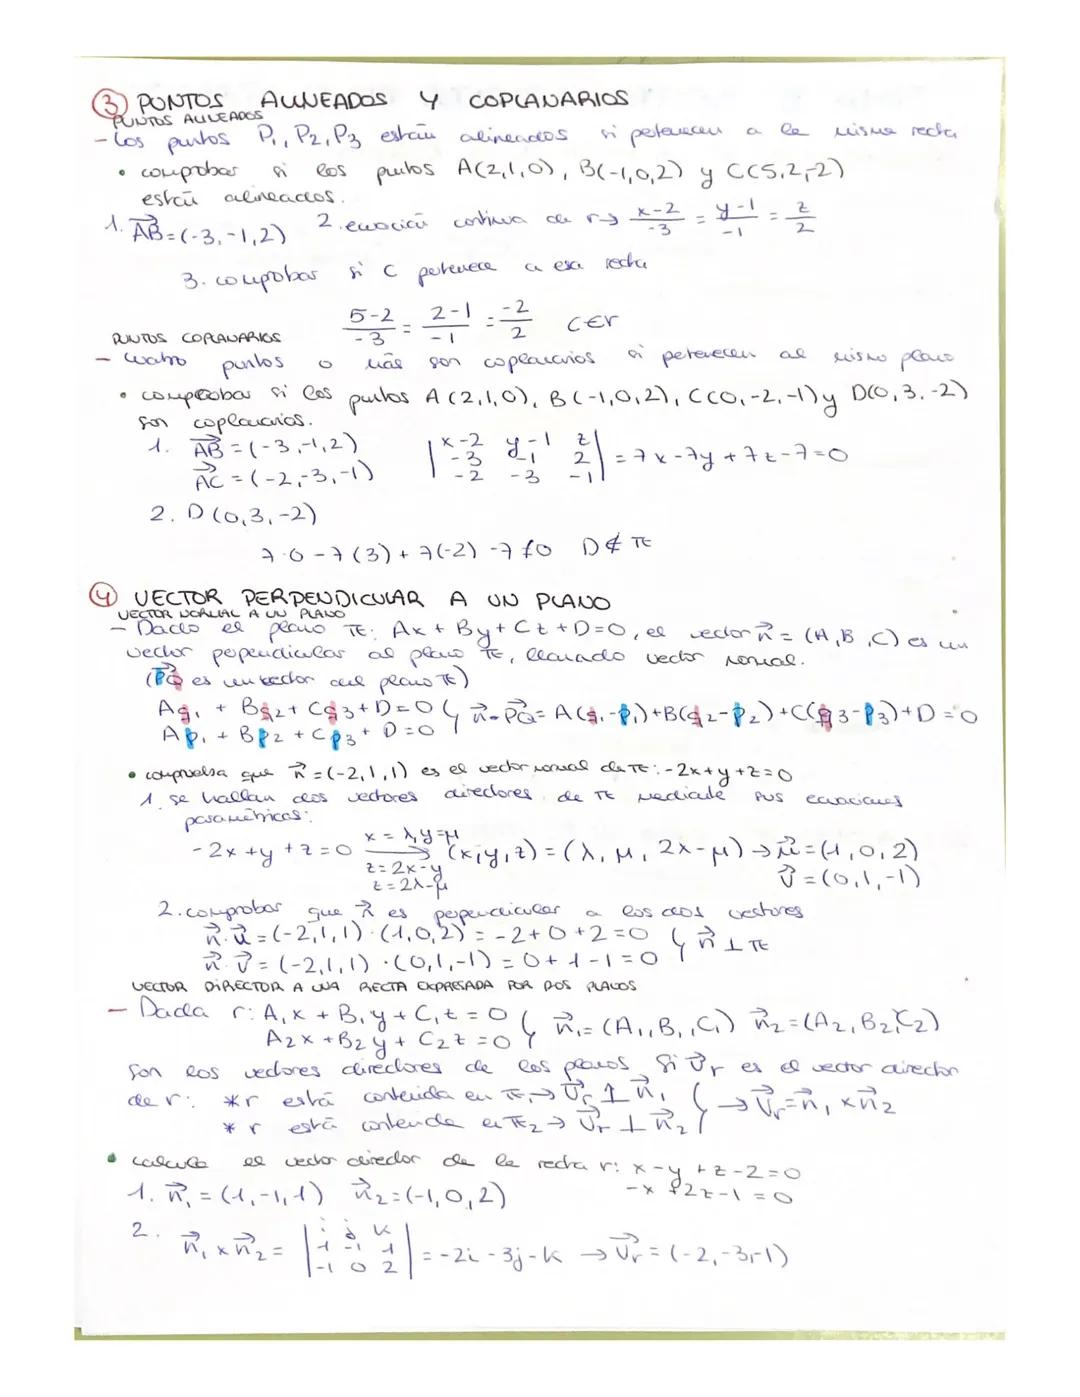 ③ PUNTOS ALINEADOS Y COPLANARIOS
PUNTOS ALINEADOS
- Los puntos P₁, P₂, P₃ están alineados si pertenecen a la misma recta
• comprobar si los puntos A(2,1,0), B(-1,0,2) y C(5,2,-2)
están alineados.
1. AB⃗=(-3,-1,2) 2. ecuación continua de r→ (x-2)/-3 = (y-1)/-1 = z/2
3. comprobar si C pertenece a esa recta
(5-2)/-3 = (2-1)/-1 = -2/2 C∈r
PUNTOS COPLANARIOS
- cuatro puntos o más son coplanarios si pertenecen al mismo plano
• comprobar si los puntos A(2,1,0), B(-1,0,2), C(0,-2,-1) y D(0,3,-2)
son coplanarios.
1. AB⃗ = (-3,-1,2) |x-2 y-1 z|
AC⃗ = (-2,-3,-1) |-3 -1 2| = 7x-7y+7z-7=0
|-2 -3 -1|
2. D(0,3,-2)
7·0-7(3)+7(-2)-7≠0 D∉π
④ VECTOR PERPENDICULAR A UN PLANO
VECTOR NORMAL A UN PLANO
- Dado el plano π: Ax+By+Cz+D=0, el vector n⃗ = (A,B,C) es un
vector perpendicular al plano π, llamado vector normal.
(PQ⃗ es un vector del plano π)
Aq₁ + Bq₂ + Cq₃ + D=0 } n⃗·PQ⃗ = A(q₁-p₁)+B(q₂-p₂)+C(q₃-p₃)+D=0
Ap₁ + Bp₂ + Cp₃ + D=0
• comprueba que n⃗=(-2,1,1) es el vector normal de π: -2x+y+z=0
1. se hallan dos vectores directores de π mediante sus ecuaciones
paramétricas:
-2x+y+z=0 x=λ, y=μ → z=2x-y z=2λ-μ (x,y,z)=(λ, μ, 2λ-μ)→ μ⃗=(1,0,2)
v⃗=(0,1,-1)
2. comprobar que n⃗ es perpendicular a los dos vectores
n⃗·u⃗=(-2,1,1)·(1,0,2)=-2+0+2=0 } n⃗ ⊥ π
n⃗·v⃗=(-2,1,1)·(0,1,-1)=0+1-1=0
VECTOR DIRECTOR A UNA RECTA EXPRESADA POR DOS PLANOS
- Dada r: A₁x+B₁y+C₁z=0 } n⃗₁=(A₁,B₁,C₁) n⃗₂=(A₂,B₂,C₂)
A₂x+B₂y+C₂z=0
son los vectores directores de los planos. Si v⃗r es el vector director
de r: *r está contenida en π₁→ v⃗r ⊥ n⃗₁ } → v⃗r=n⃗₁×n⃗₂
*r está contenida en π₂→ v⃗r ⊥ n⃗₂
• calcula el vector director de la recta r: x-y+z-2=0
-x+2z-1=0
1. n⃗₁=(1,-1,1) n⃗₂=(-1,0,2)
2. n⃗₁×n⃗₂ = |i j k|
|1 -1 1| = -2i-3j-k → v⃗r=(-2,-3,-1)
|-1 0 2|